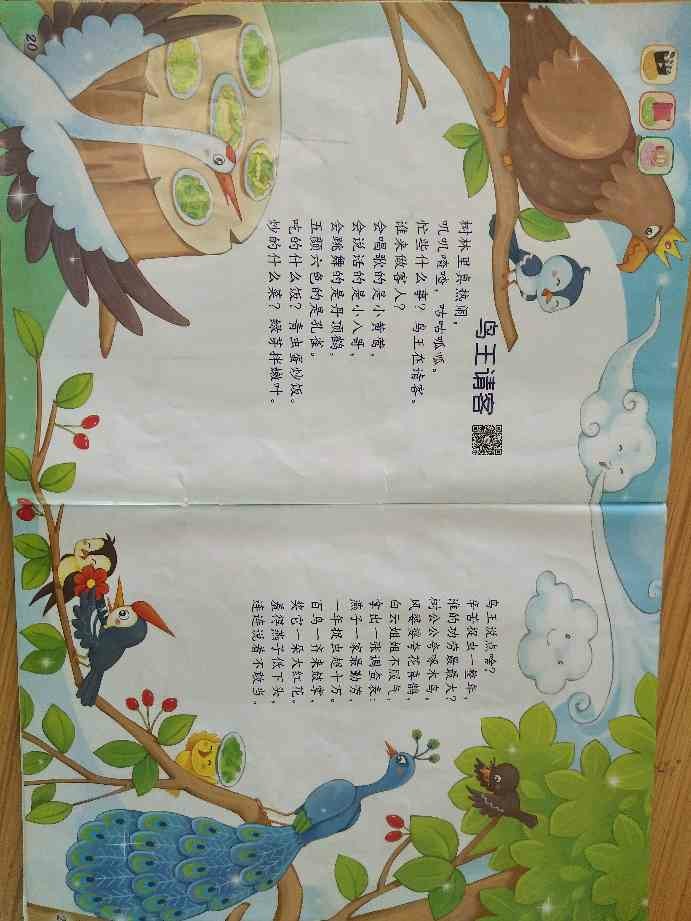 鸟王请客
树林里真热闹，
叽叽喳喳，咕咕呱呱。
忙些什么事？鸟王在请客。
谁来做客人？
会唱歌的是小黄莺，
会说话的是小八哥，
会跳舞的是丹顶鹤，
五颜六色的是孔雀。
吃的什么饭？青虫蛋炒饭。
炒的什么菜？绿芽拌嫩叶。
20
鸟王说点啥？
辛苦捉虫一整年，
谁的功劳最最大？
树公公夸啄木鸟，
风婆婆夸花喜鹊，
白云姐姐不服气，
拿出一张调查表：
燕子一家最勤劳，
一年捉虫超十万。
百鸟一齐来鼓掌，
奖它一朵大红花。
羞得燕子低下头，
连连说着不敢当。